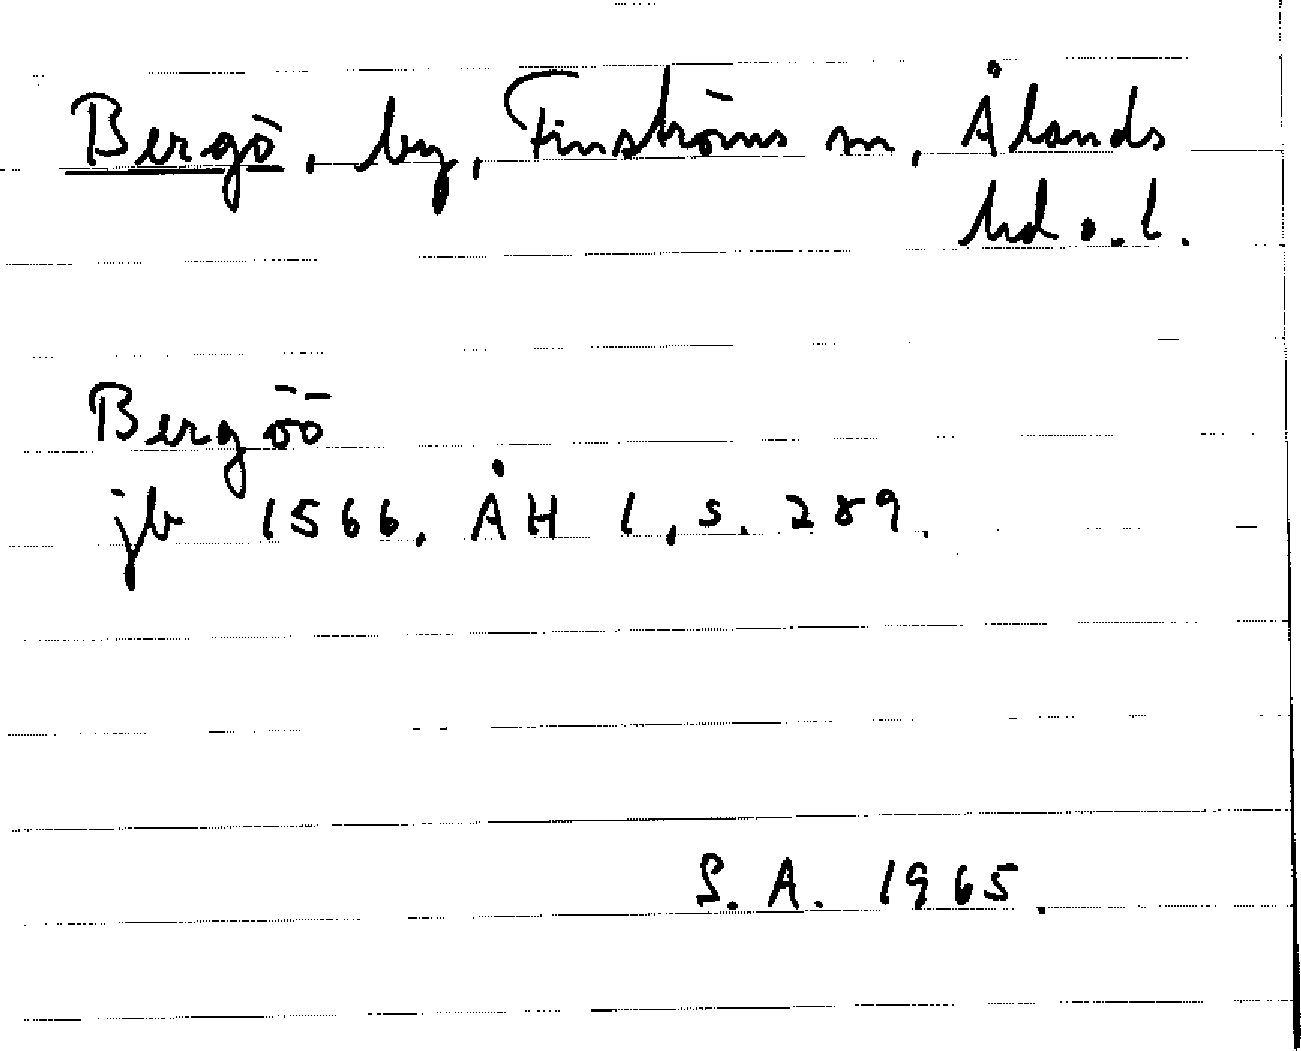 Bergö, by, Finströms sn, Ålands
hd o. l.
Bergöö
jb 1566. ÅH 1, s. 289.
S. A. 1965.